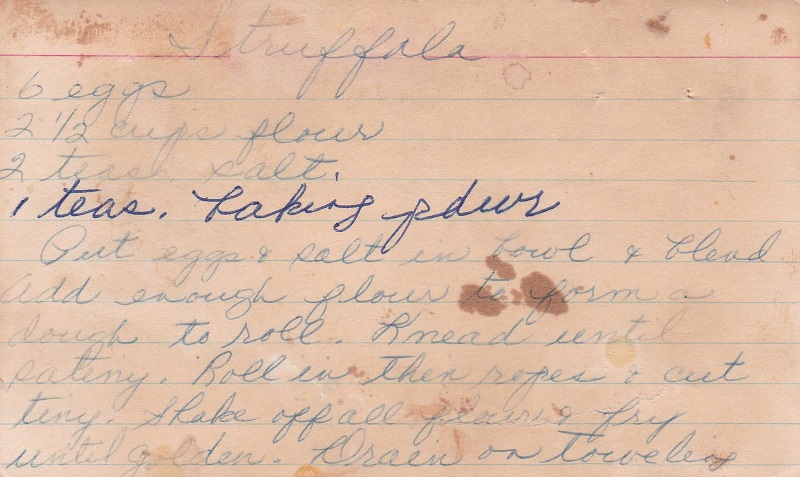 Struffola
6 eggs
2 1/2 cups flour
2 teas. salt.
1 teas. baking pdwr
Put eggs & salt in bowl & blend.
Add enough flour to form a
dough to roll. Knead until
sateny. Roll in then ropes & cut
tiny. Shake off all flour & fry
until golden. Drain on toweling